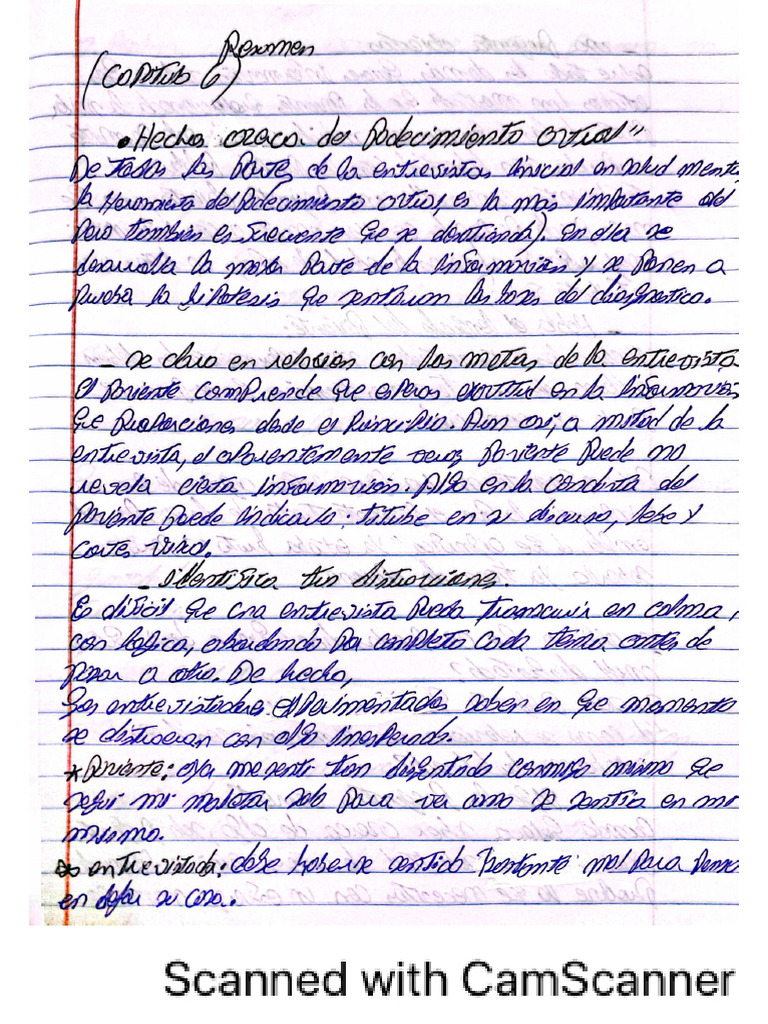 Resumen
(Capitulo 6)
• Hechos acerca del Padecimiento actual"
De todas las partes de la entrevistas inicial en salud mental
la del Padecimiento actual, es la más importante
Pero también es frecuente que se desatienda). en ella se
desarrolla la mayor Parte de la información y se Ponen a
Prueba la hipótesis que sentaron las bases del diagnostico.
- se claro en relación con las metas de la entrevista
el Paciente comprende que esperas exactitud en la información
que Proporciones desde el Principio. Aun así, a mitad de la
entrevista, el aparentemente Paciente Puede no
revela cierta información. Algo en la conducta del
Paciente Puede indicarlo: titube en su discurso, y
contes visual.
- identifica tus distracciones.
Es difícil que una entrevista Pueda transcurrir en calma,
con logica, abordando Por completo cada tema antes de
Pasar a otro. De hecho,
Los entrevistadores experimentados saben en que momento
se distraeran con algo inesperado.
* Paciente: ayer me sentí tan disgustado conmigo mismo que
seguí mi malestar solo Para ver como se sentia en mi
mismo.
entrevistador: debe haberse sentido bastante mal Para
en dejar su casa.
Scanned with CamScanner